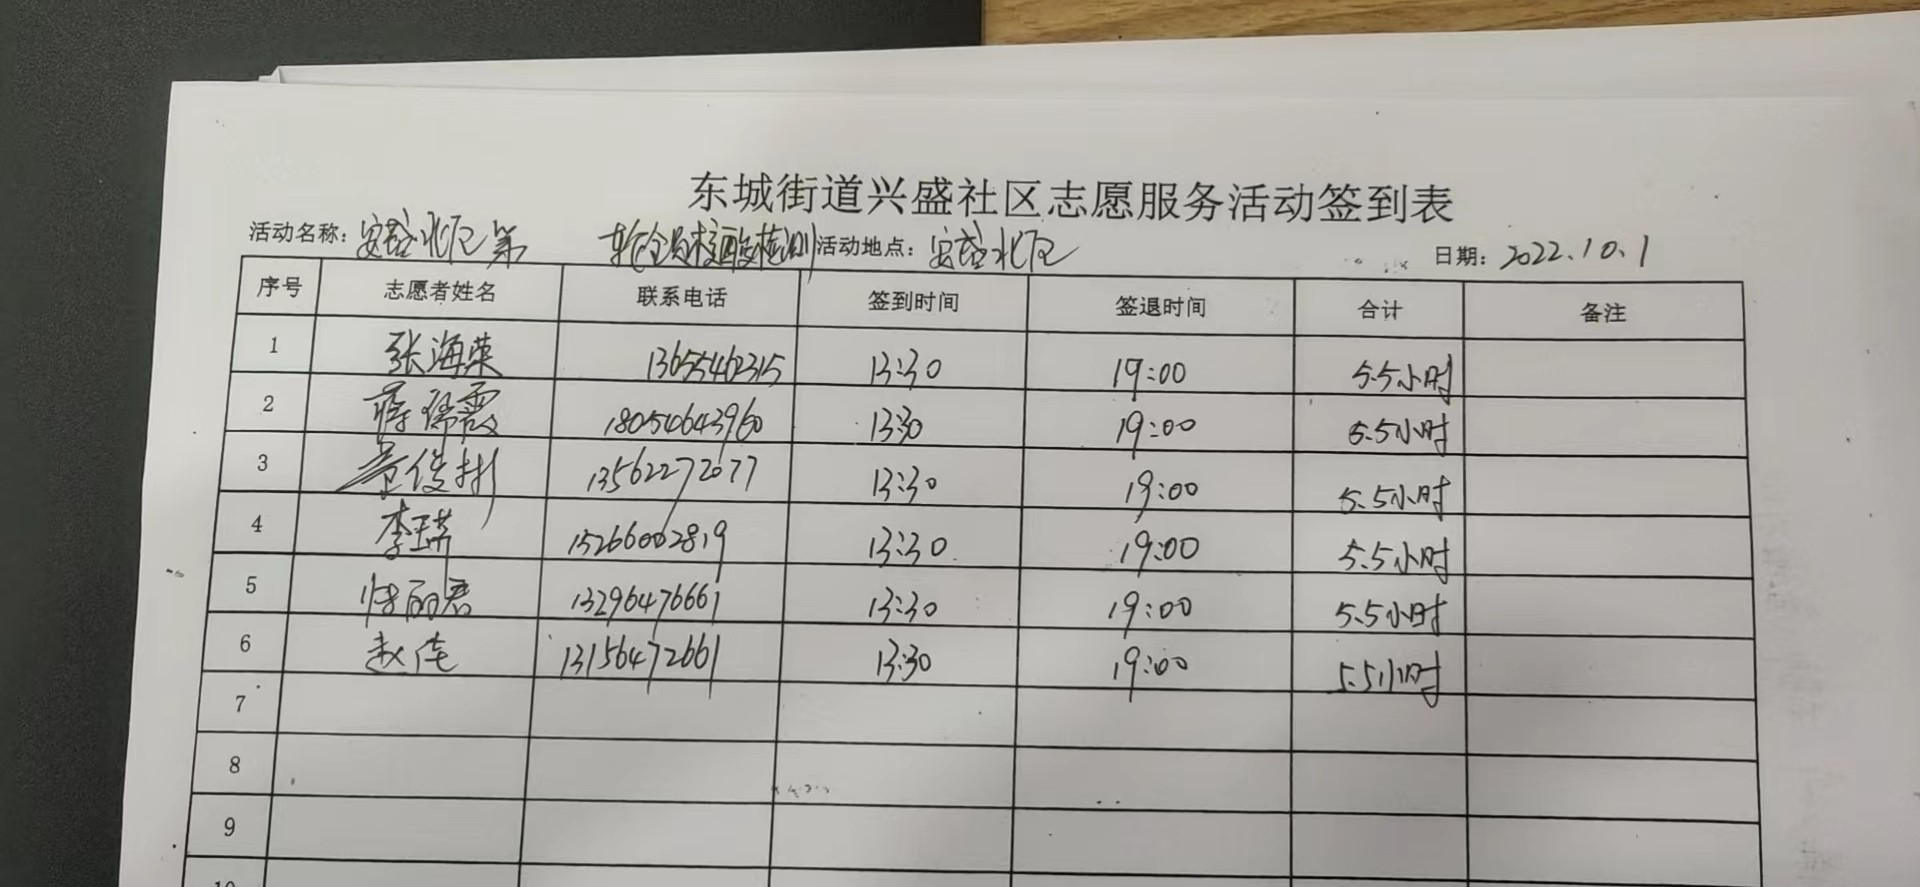 东城街道兴盛社区志愿服务活动签到表
活动名称：安荟北区第 轮全员核酸检测 活动地点：安荟北区 日期：2022.10.1
序号 志愿者姓名 联系电话 签到时间 签退时间 合计 备注
1 张海荣 13655462315 13:30 19:00 5.5小时
2 蒋 霞 18054643960 13:30 19:00 5.5小时
3 俊彬 13562272077 13:30 19:00 5.5小时
4 李瑞 15266002819 13:30 19:00 5.5小时
5 丽君 13296476661 13:30 19:00 5.5小时
6 赵佳 13156472661 13:30 19:00 5.5小时
7
8
9
10